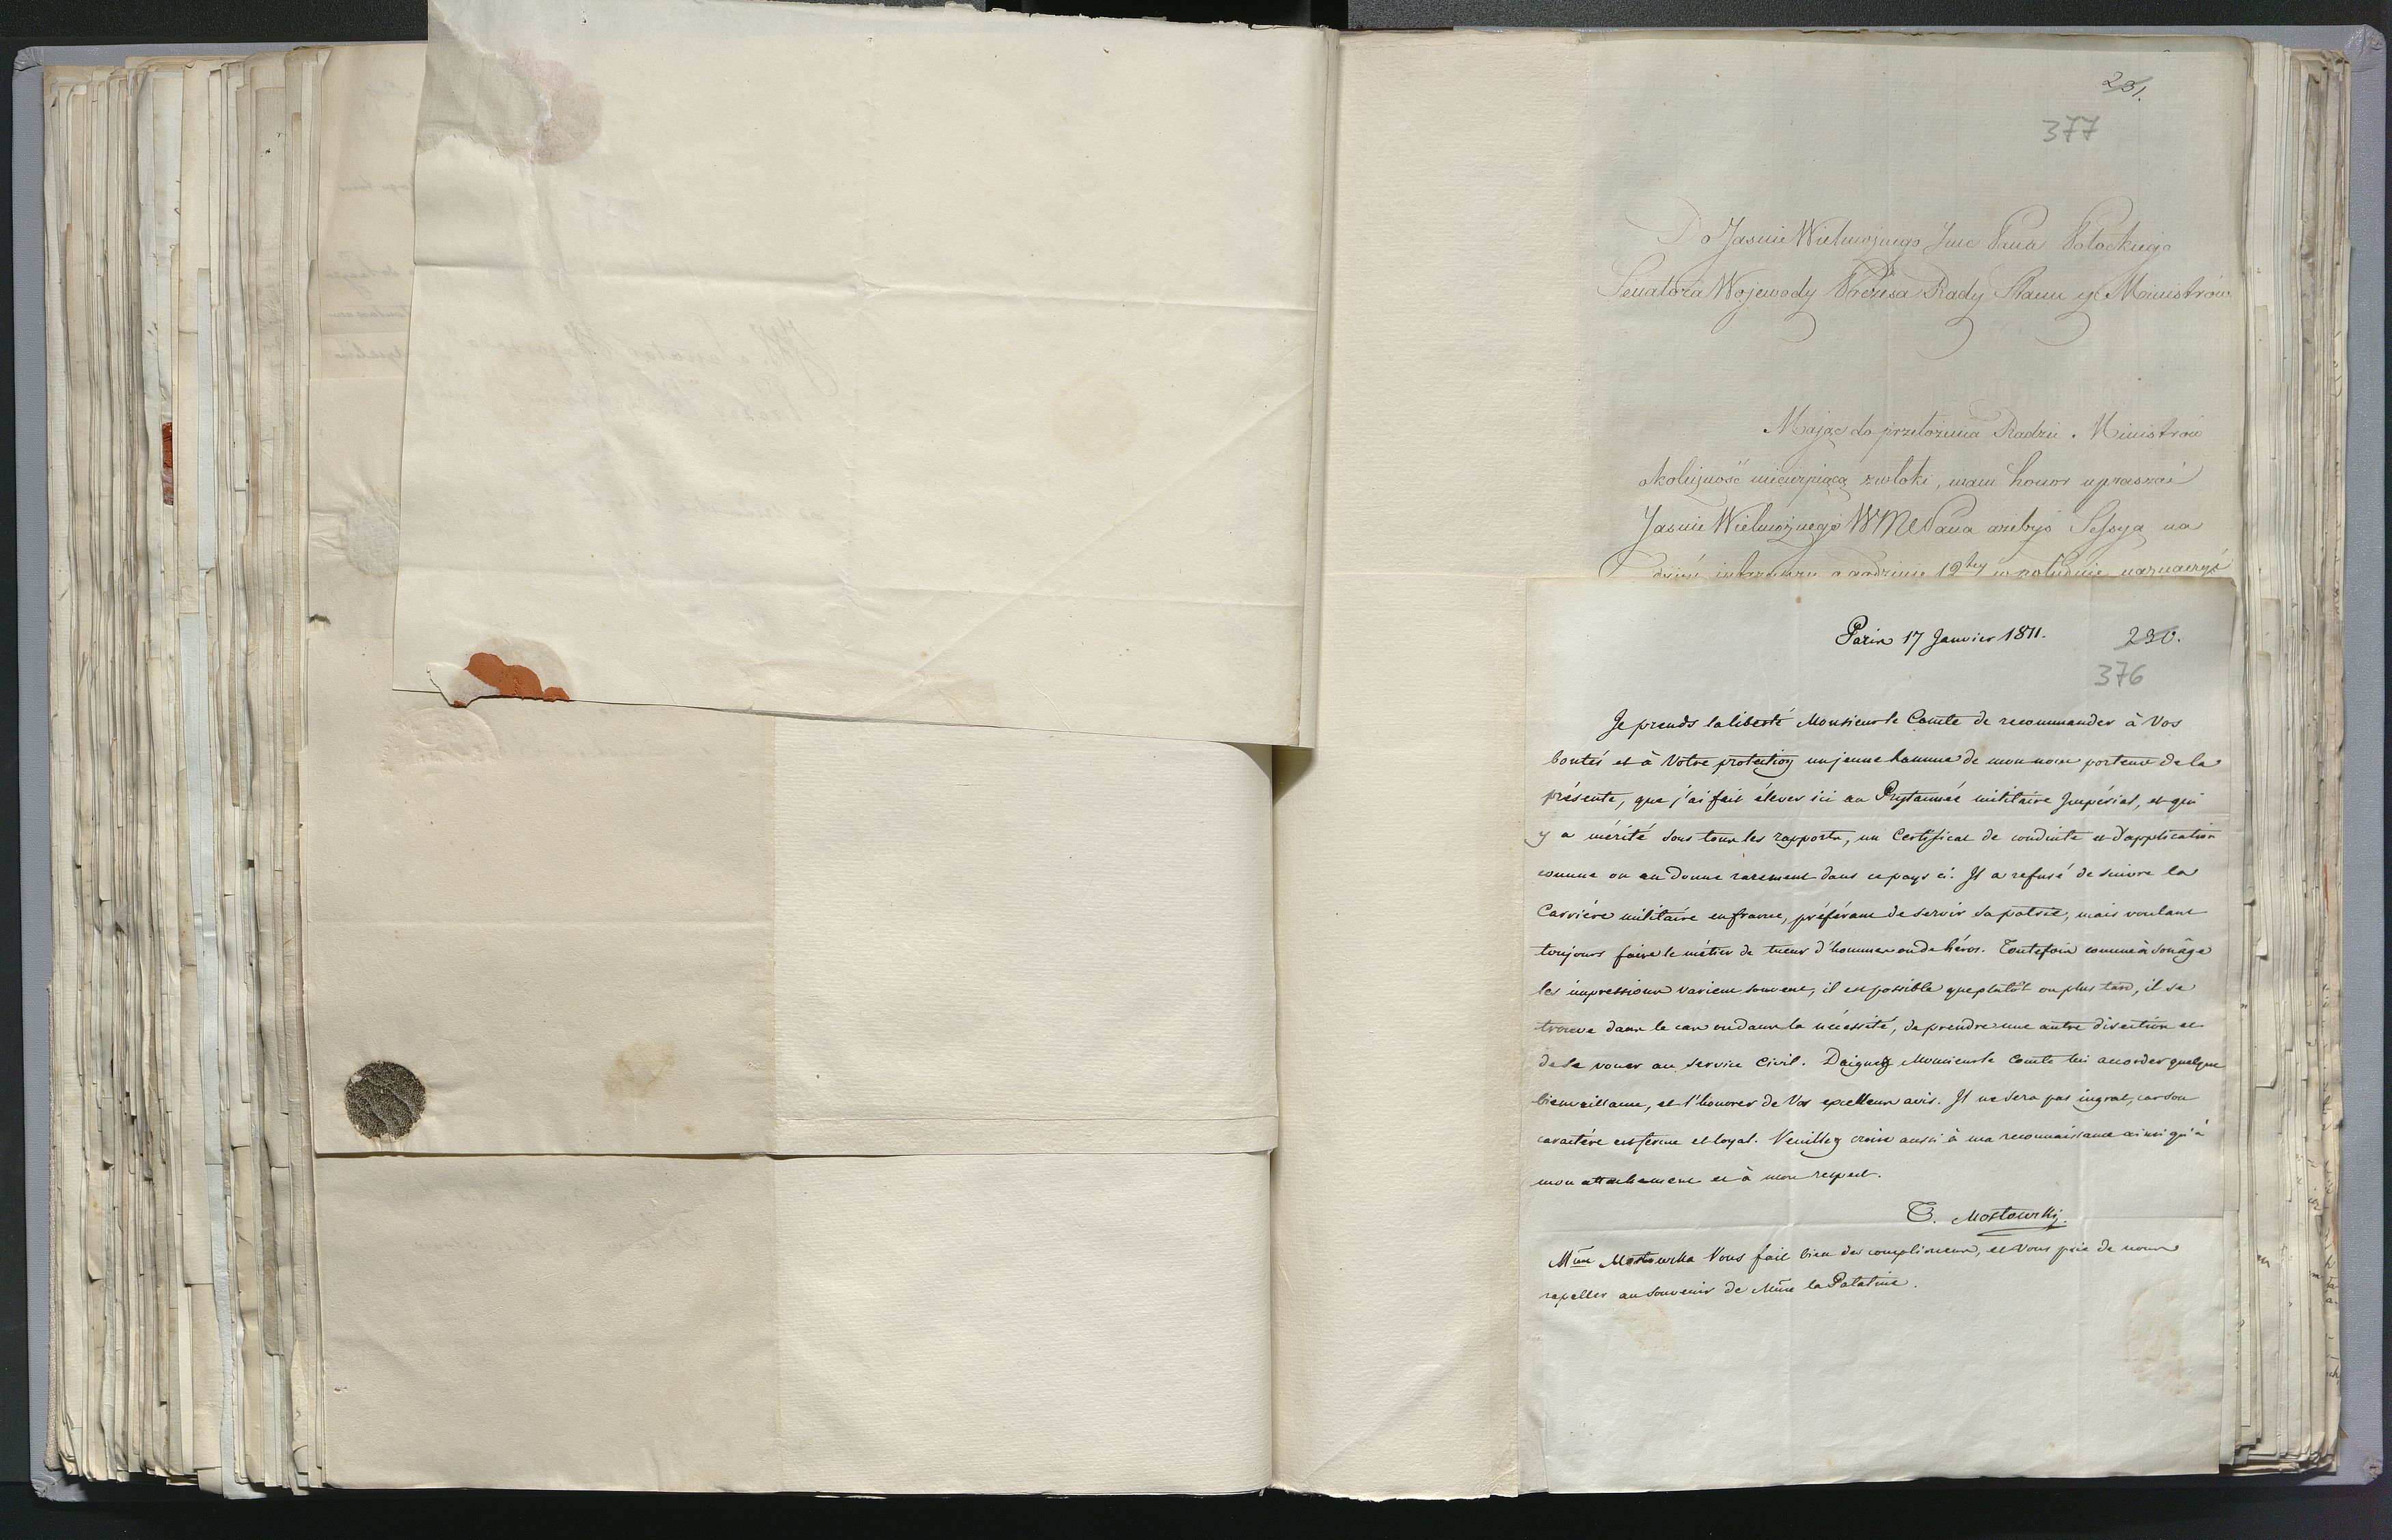 231.
377
Do Jasnie Wielmożnego Jmc Pana Potockiego
Senatora Wojewody Prezesa Rady Stanu y Ministrów
Maiąc do przełożenia Radzie Ministrów
okoliczność niecierpiącą zwłoki, mam honor upraszać
Jasnie Wielmożnego WMPana ażebyś Sessyą na
dzień iutrzeyszy o godzinie 12tey w południe naznaczyć
Paris 17 Janvier 1811.
230.
376
Je prends la liberté Monsieur le Comte de recommander à Vos
bontés et à Votre protection un jeune homme de mon nom porteur de la
présente, que j'ai fait élever ici au Prytannée militaire Impérial, et qui
y a mérité sous tous les rapports, un Certificat de conduite et d'application
comme on en donne rarement dans ce pays ci. Il a refusé de suivre la
Carrière militaire en france, préférant de servir sa patrie, mais voulant
toujours faire le métier de tueur d'hommes ou de héros. Toutefois comme à son âge
les impressions varient souvent, il est possible que plutôt ou plus tard, il se
trouve dans le cas ou dans la nécessité, de prendre une autre direction et
de se vouer au service Civil. Daignez Monsieur le Comte lui accorder quelque
bienveillance, et l'honorer de Vos excellens avis. Il ne sera pas ingrat, car son
caractère est ferme et loyal. Veuillez croire aussi à ma reconnaissance ainsi qu'à
mon attachement et à mon respect.
T. Mostowski.
Mme Mostowska Vous fait bien des complimens, et Vous prie de nous
rapeller au souvenir de Mme la Palatine.